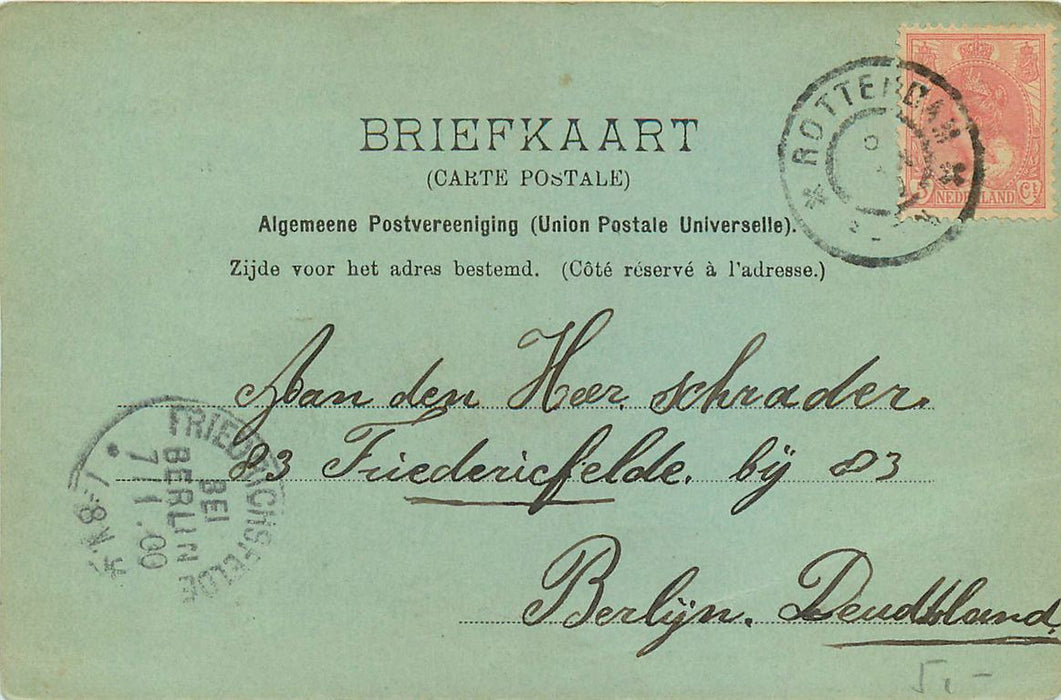 BRIEFKAART
(CARTE POSTALE)
Algemeene Postvereeniging (Union Postale Universelle).
Zijde voor het adres bestemd. (Côté réservé à l'adresse.)
ROTTERDAM
5 Ct
NEDERLAND
Aan den Heer schrader.
83 Friedericfelde. bÿ 83
Berlÿn. Deudtsland.
FRIEDRICHSFELDE
BEI
BERLIN
7-8V.
5,-